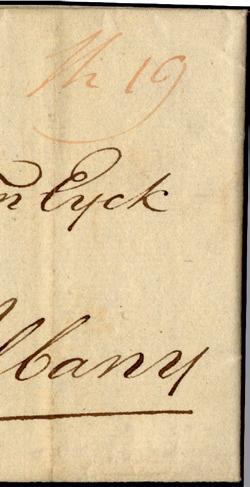 19
n Eyck
lbany